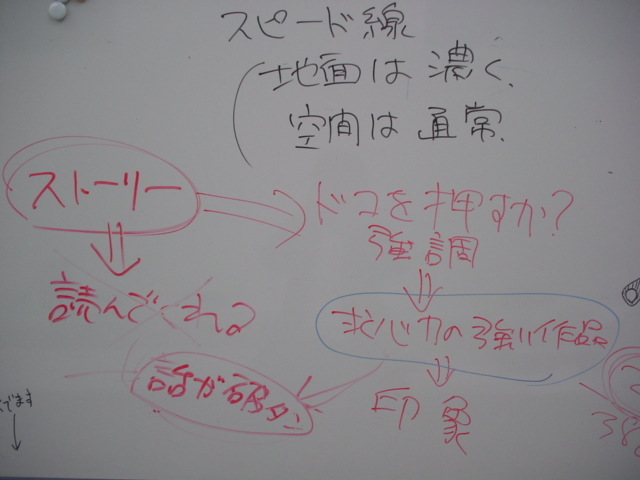 スピード線
地面は濃く、
空間は通常、
ストーリー
ドコを押すか?
強調
読んでくれる
求心力の強い作品
話が破タン
印象